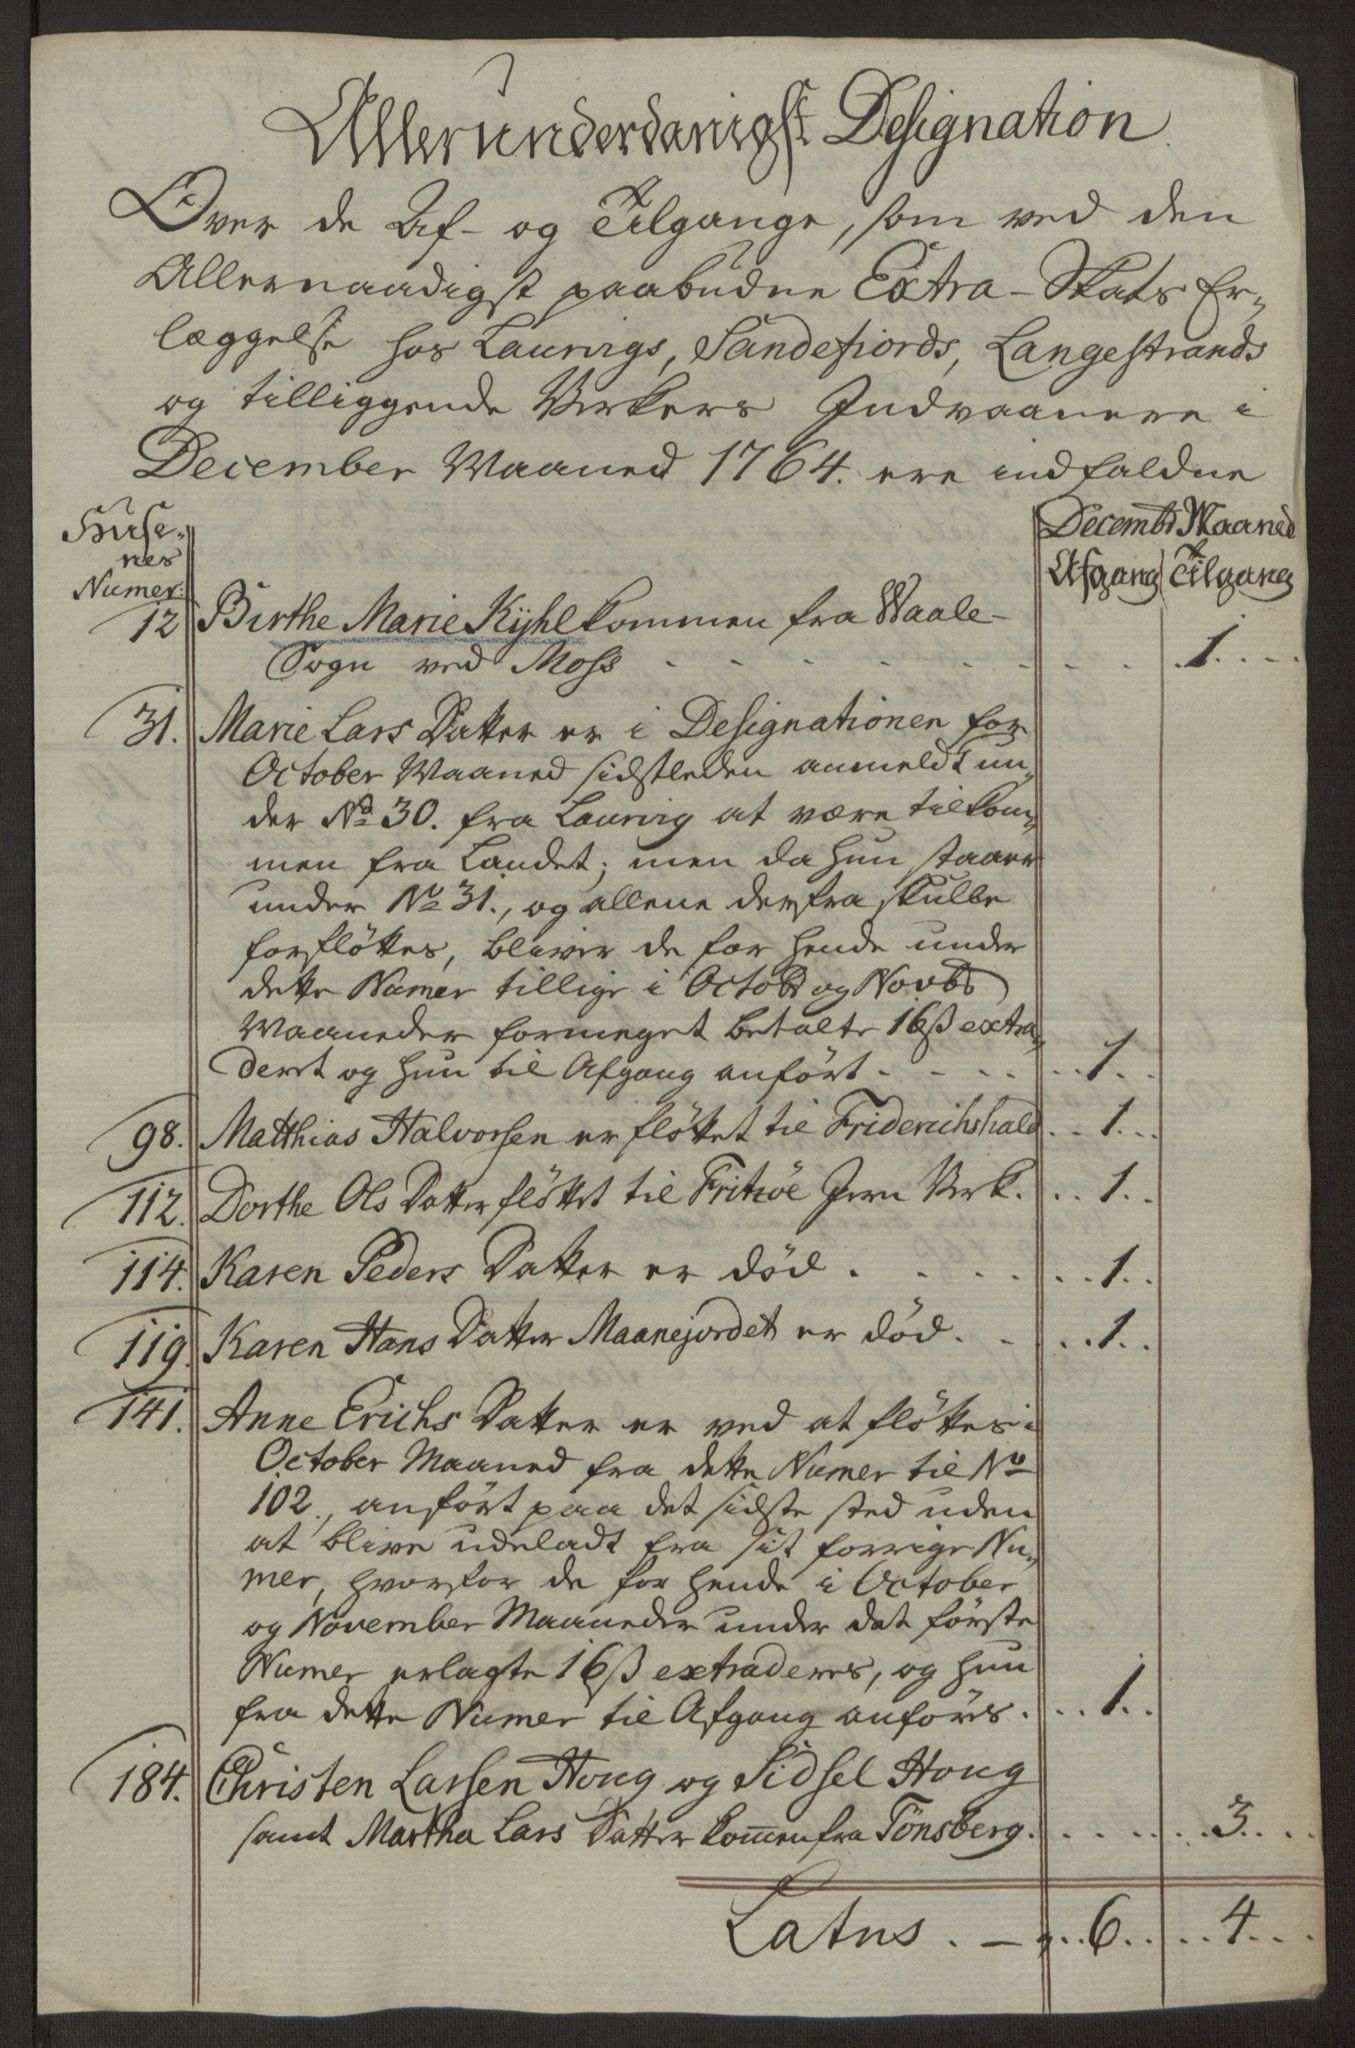 Allerunderdanigst Designation
Over de Af- og Tilgange, som ved den
Allernaadigst paabudne Extra-Skats Er-
læggelse hos Laurvigs, Sandefiords, Langestrands
og tilliggende Verkers Indvaanere i
December Maaned 1764. ere indfaldne
Huse-
nes
Numer:
Decembr Maaned
Afgang Tilgang
12 Birthe Marie Kÿhl kommen fra Waale-
Sogn ved Moss - - - - - - - - - 1 . . . .
31. Marie Lars Datter er i Designationen for
October Maaned sidstleden anmeldt un-
der No 30. fra Laurvig at være tilkom-
men fra Landet; men da hun staaer
under No 31., og allene derfra skulle
forflöttes, bliver de for hende under
dette Numer tillige i Octobr og Novbr
Maaneder formeget betalte 16 ß extra-
deret og hun til Afgang anfört . . . . . 1 . .
98. Matthias Halvorsen er flöttet til Friderichshald . . 1 . . .
112. Dorthe Ols Datter flöttet til Fritzöe Jern Verk . . . 1 . .
114. Karen Peders Datter er död . . . . . . . 1 . .
119. Karen Hans Datter Maanejordet er död . . . . 1 . .
141. Anne Erichs Datter er ved at flöttes i
October Maaned fra dette Numer til No
102., anfört paa det sidste sted uden
at blive udeladt fra sit forrige Nu-
mer, hvorfor de for hende i October
og November Maaneder under det förste
Numer erlagte 16 ß extraderes, og hun
fra dette Numer til Afgang anföres . . . 1 . .
184. Christen Larsen Houg og Sidsel Houg
samt Martha Lars Datter kommen fra Tönsberg . . . . . . . 3 . . . .
Latus . - . . . 6 . . . . 4 . . .